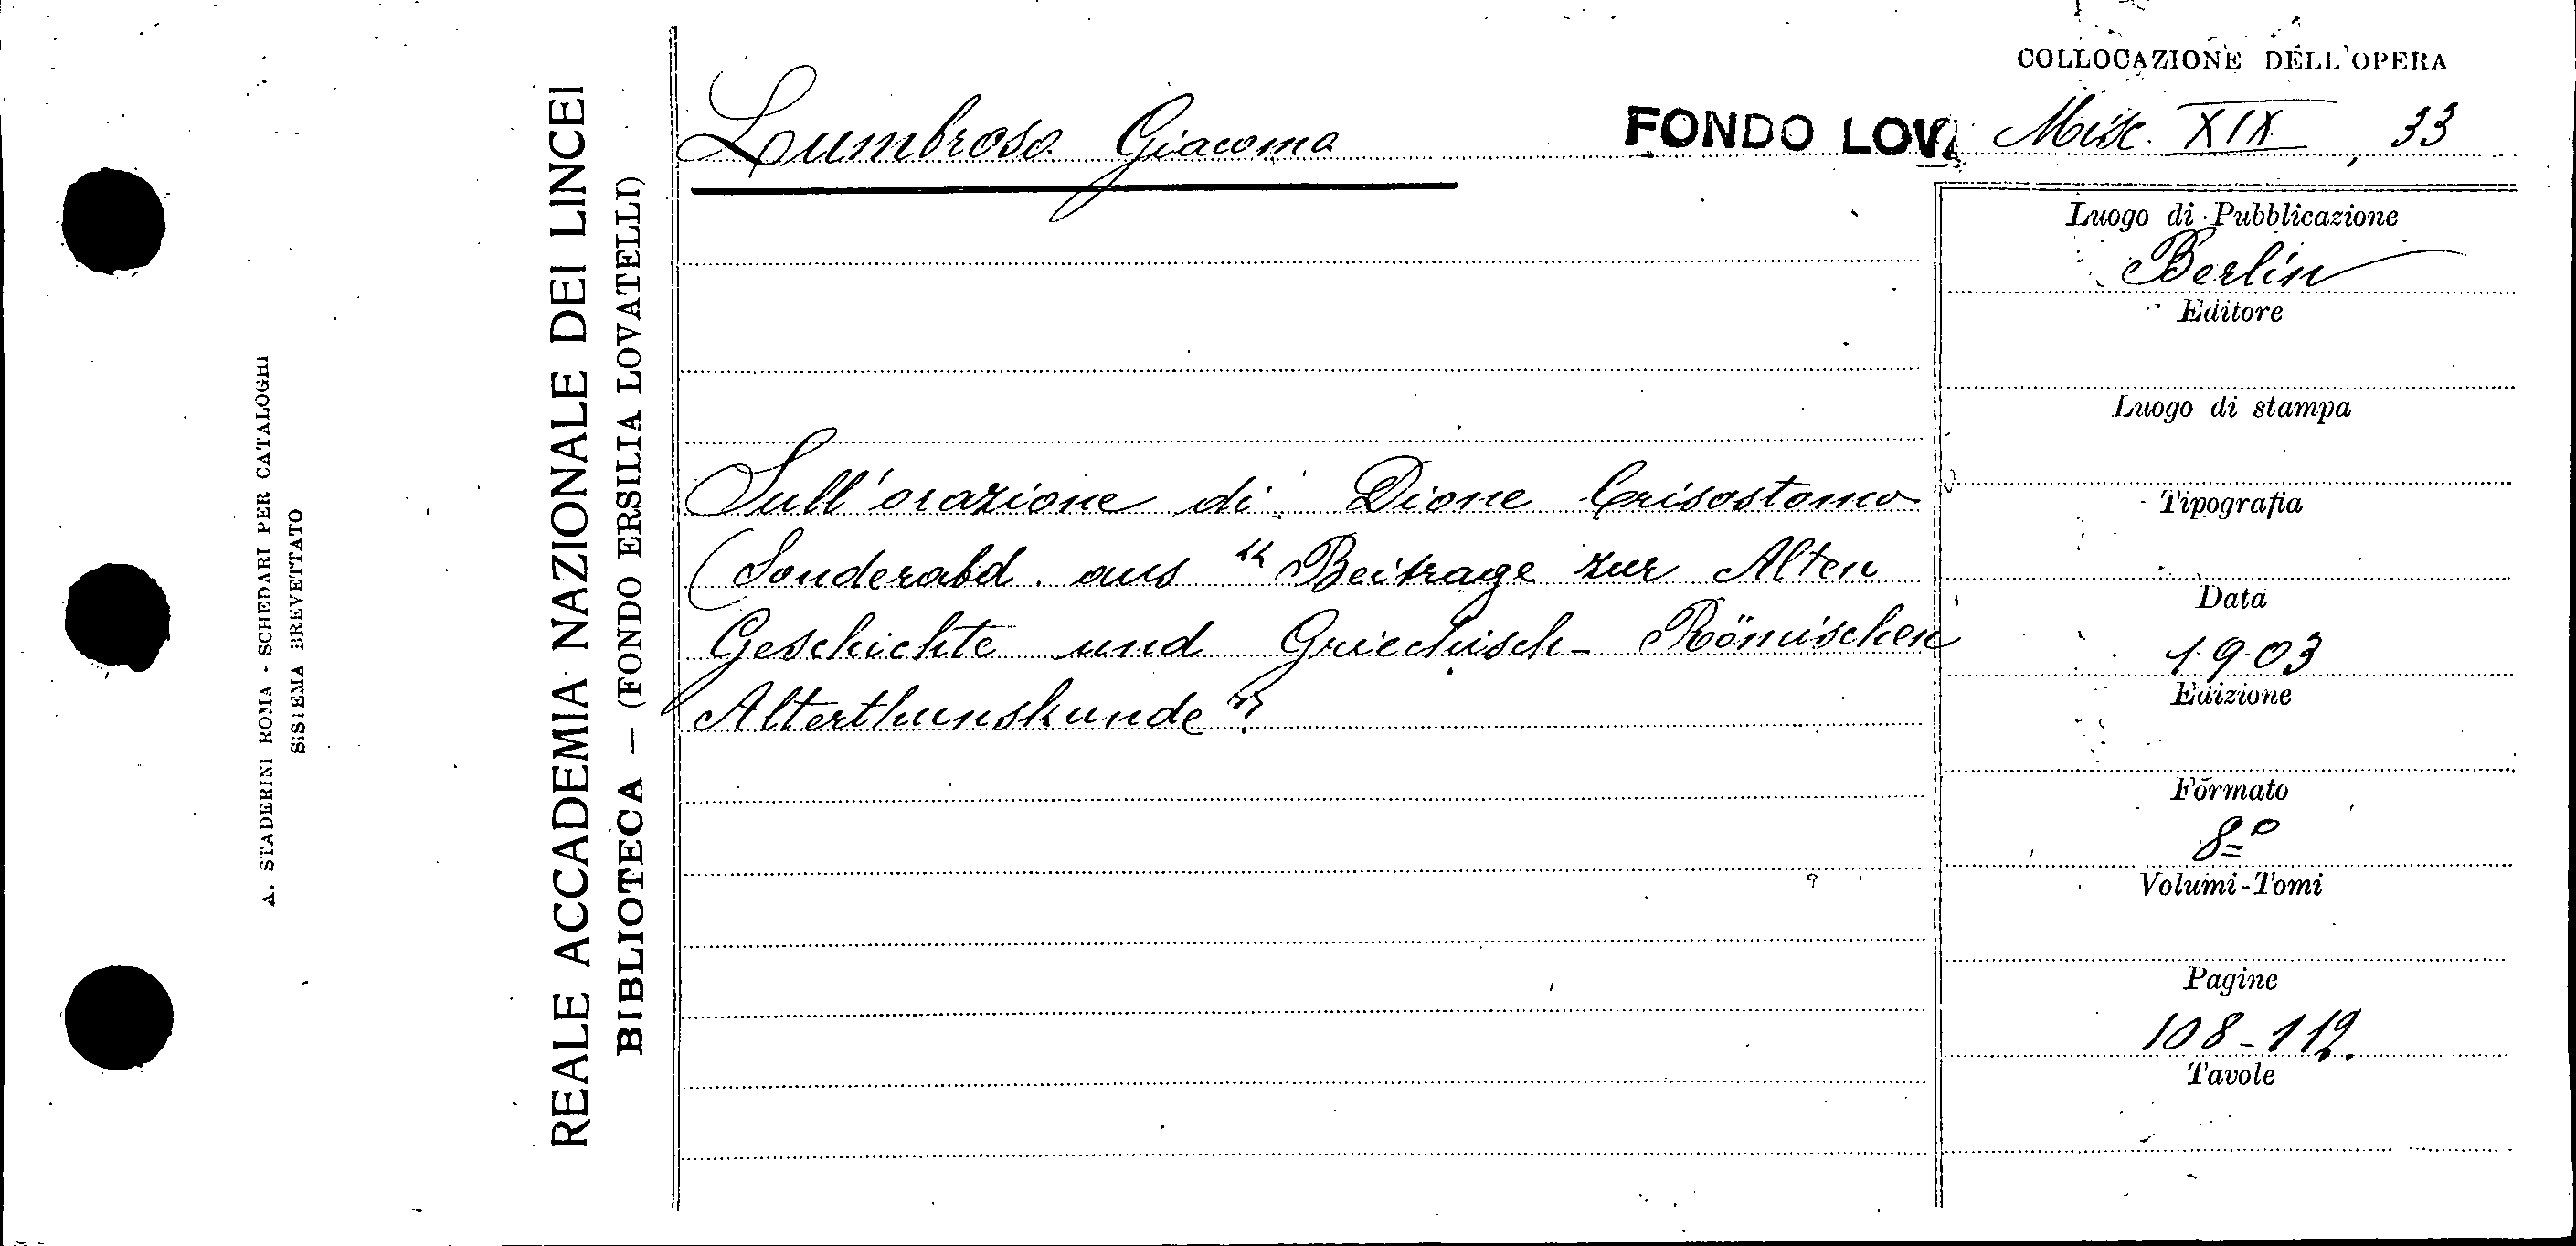 COLLOCAZIONE DELL'OPERA
Lumbroso Giacomo
FONDO LOV. Misc. XIX, 33
Luogo di Pubblicazione
Berlin
Editore
Luogo di stampa
Sull'orazione di Dione Crisostomo
(Sonderabd. aus "Beitrage zur Alten
Geschichte und Griechisch-Römischen
Alterthumskunde".
Tipografia
Data
1903
Edizione
Formato
8º
Volumi-Tomi
Pagine
108-112.
Tavole
REALE ACCADEMIA NAZIONALE DEI LINCEI
BIBLIOTECA — (FONDO ERSILIA LOVATELLI)
A. STADERINI ROMA - SCHEDARI PER CATALOGHI
SISTEMA BREVETTATO